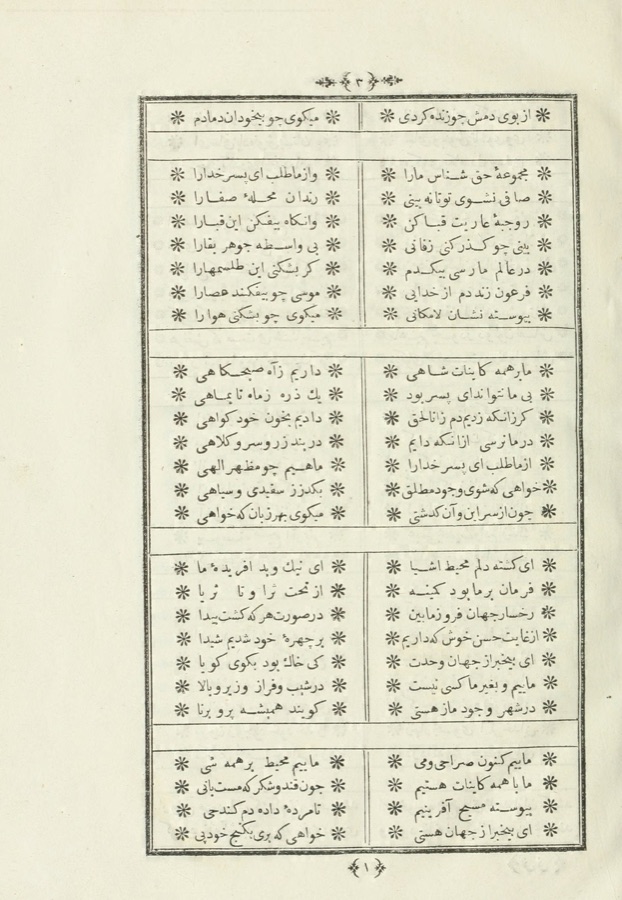 ٣
از بوی دمش جو زنده کردی * میکوی جو بیخودان دمادم
مجموعهٔ حق شناس مارا * واز ما طلب ای پسر خدارا
صافی نشوی تو تا نه بینی * رندان محلهٔ صفارا
رو جبهٔ عاریت قبا کن * وانکاه بیفکن این قبارا
بینی چو کذر کنی زفانی * بی واسطه جوهر بقارا
در عالم ما رسی بیکدم * کر بشکنی این طلسمهارا
فرعون زند دم از خدایی * موسی چو بیفکند عصارا
پیوسته نشان لامکانی * میکوی چو بشکنی هوارا
ما بر همه کاینات شاهی * داریم زآه صبحکاهی
بی ما نتواند ای پسر بود * یك ذره زماه تا بماهی
کر زانکه زدیم دم زانا لحق * دادیم بخون خود کواهی
در ما نرسی ازانکه دایم * در بند زر و سر و کلاهی
از ما طلب ای پسر خدارا * ماهیم چو مظهر الهی
خواهی که شوی وجود مطلق * بکذر ز سفیدی و سیاهی
چون از سر این و آن کذشتی * میکوی بهر زبان که خواهی
ای کشته دلم محیط اشیا * ای نیك و بد افریدهٔ ما
فرمان بر ما بود کمینه * از تحت ثرا و تا ثریا
رخسار جهان فروز ما بین * در صورت هر که کشت پیدا
از غایت حسن خوش که داریم * بر چهرهٔ خود شدیم شیدا
ای بیخبر از جهان وحدت * کی خاك بود بکوی کویا
ماییم و بغیر ما کسی نیست * در شیب و فراز و زیر و بالا
در شهر وجود ما ز هستی * کویند همیشه پر و برنا
ماییم کنون صراحی و می * ماییم محیط بر همه شی
ما با همه کاینات هستیم * چون قند و شکر که هست بانی
پیوسته مسیح آفرینیم * تا مردهٔ داده دم کند حی
ای بیخبر از جهان هستی * خواهی که بری بکنج خود پی
١